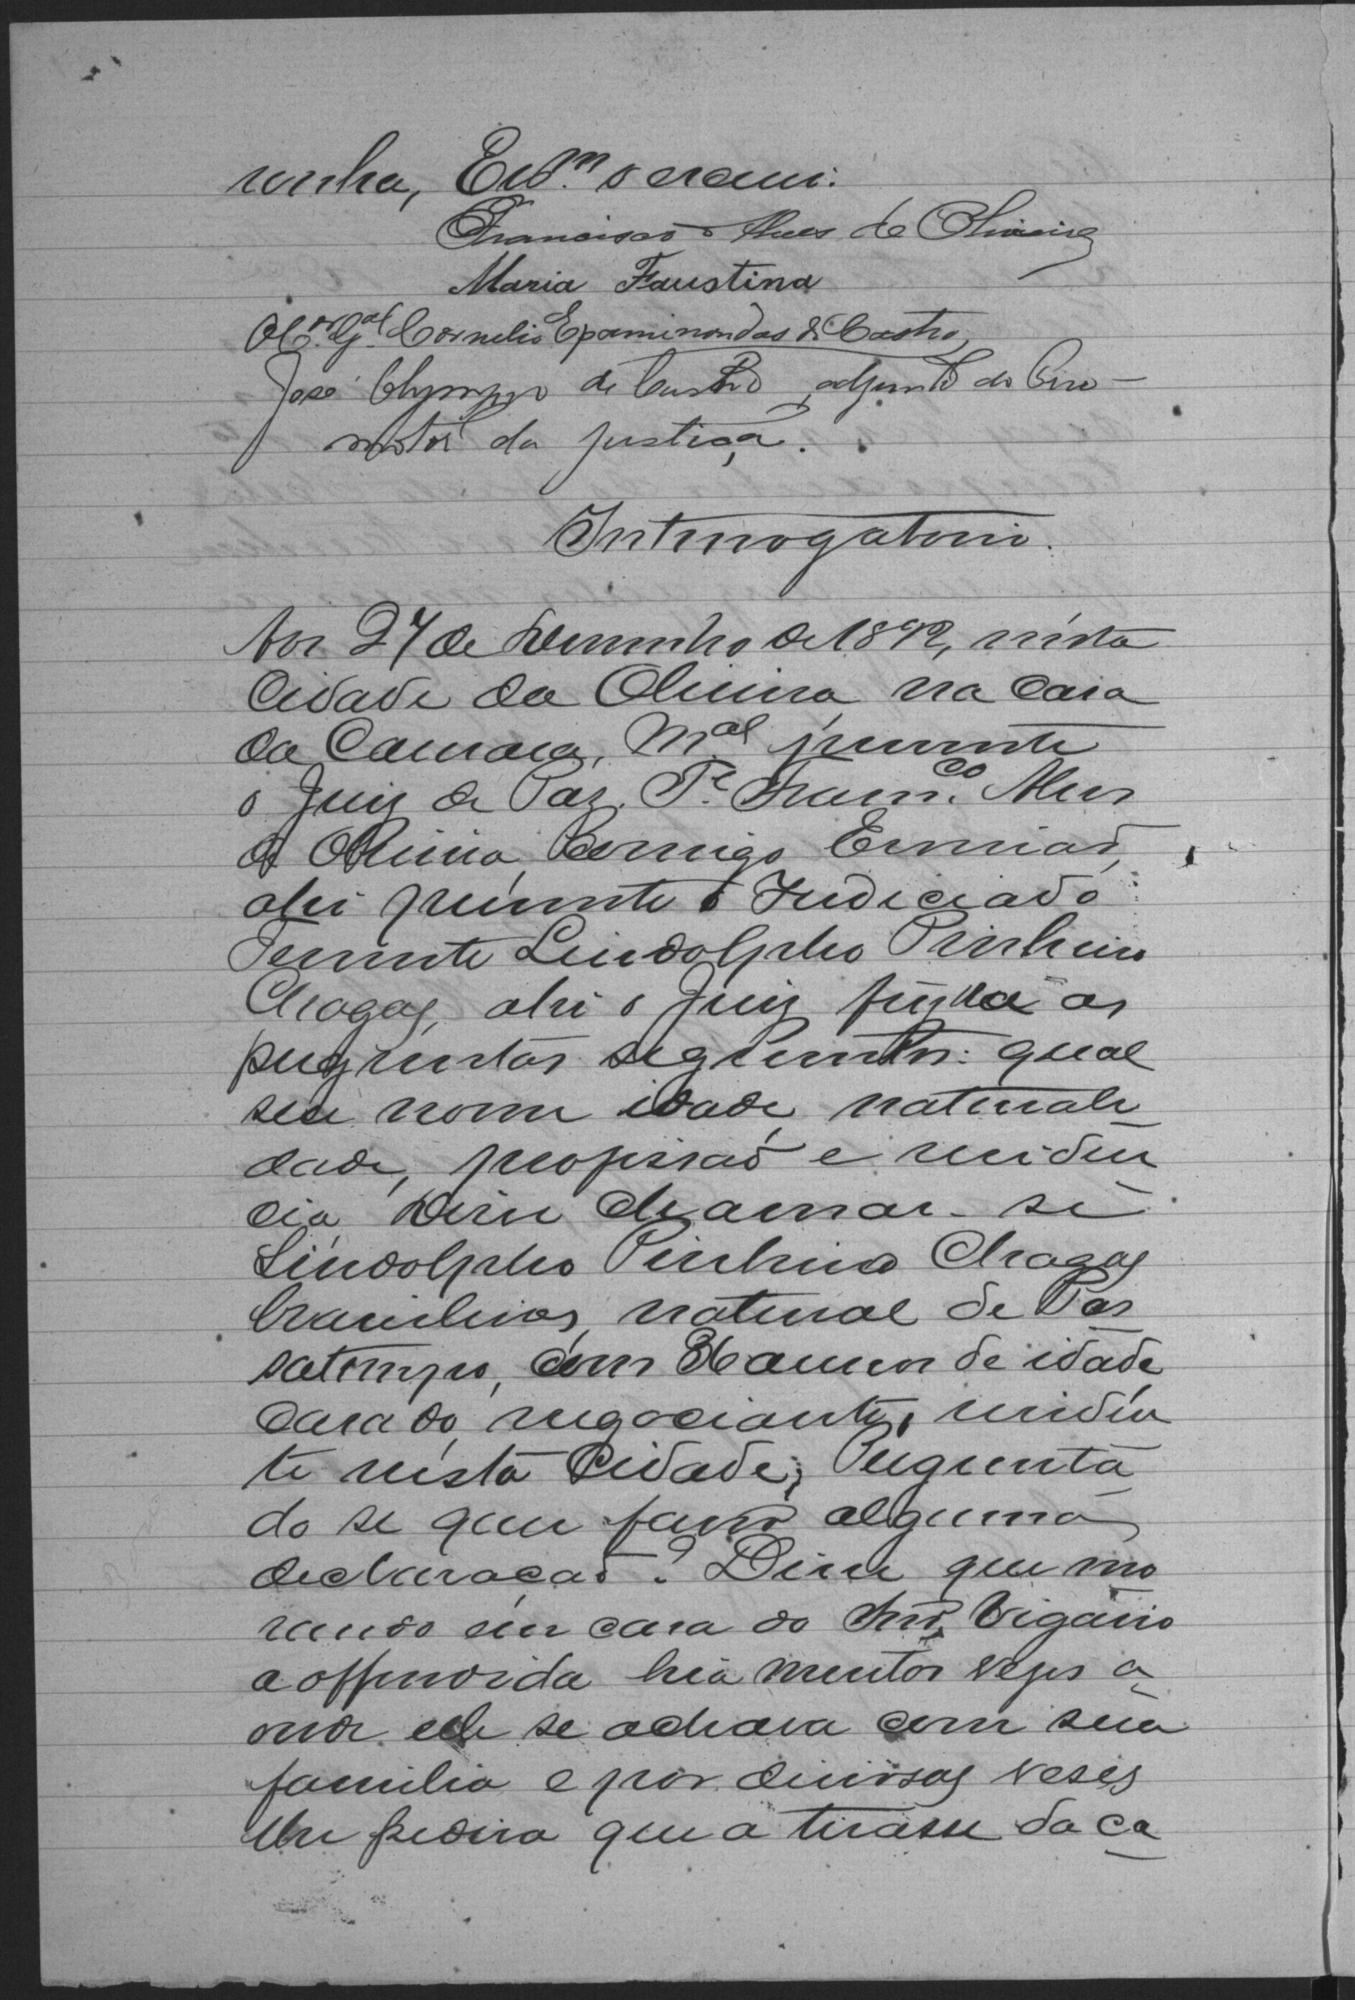 nunha, Escr.m o screvi.
Francisco Alves de Oliveira
Maria Faustina
O C.or G.al Cornelio Epaminondas de Castro,
José Olympyo de Castro, adjunto do Pro-
motor da justiça.
Interrogatorio.
Aos 27 de Dezembro de 1892, nésta
Cidade da Oliveira na Casa
da Camara, M.al presente
o Juiz de Paz, T.e Fran.co Alves
de Oliveira, Comigo Escrivaõ,
ahi presente o Indiciado
Tenente Lindolpho Pinheiro
Chagas, ahi o Juiz fez ha as
perguntas seguintes: qual
seu nome idade, naturali
dade, profissaõ e residen
cia, Disse chamar-se
Lindolpho Pinheiro Chagas
brasileiro, natural de Pas
satempo, com 36 annos de idade
casado, negociante, residen
te nésta Cidade; Pergunta
do se quer fazer alguma
declaraçaõ? Disse que mo
rando em casa do Snr. Vigário
a offendida hia muitas vezes a
onde elle se achava com sua
familia e por diversas veses
lhe pedira que a tirasse da ca